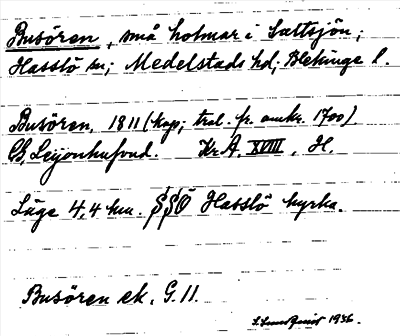 Busören, små holmar i Saltsjön;
Hasslö sn; Medelstads hd; Blekinge l.
Busören, 1811 (kop; trol. fr. omkr. 1700).
Leijonhufvud. Kr A. XVIII, H.
Läge 4,4 km. SSÖ Hasslö kyrka.
Busören ek. G. 11.
S. Lundquist 1936.